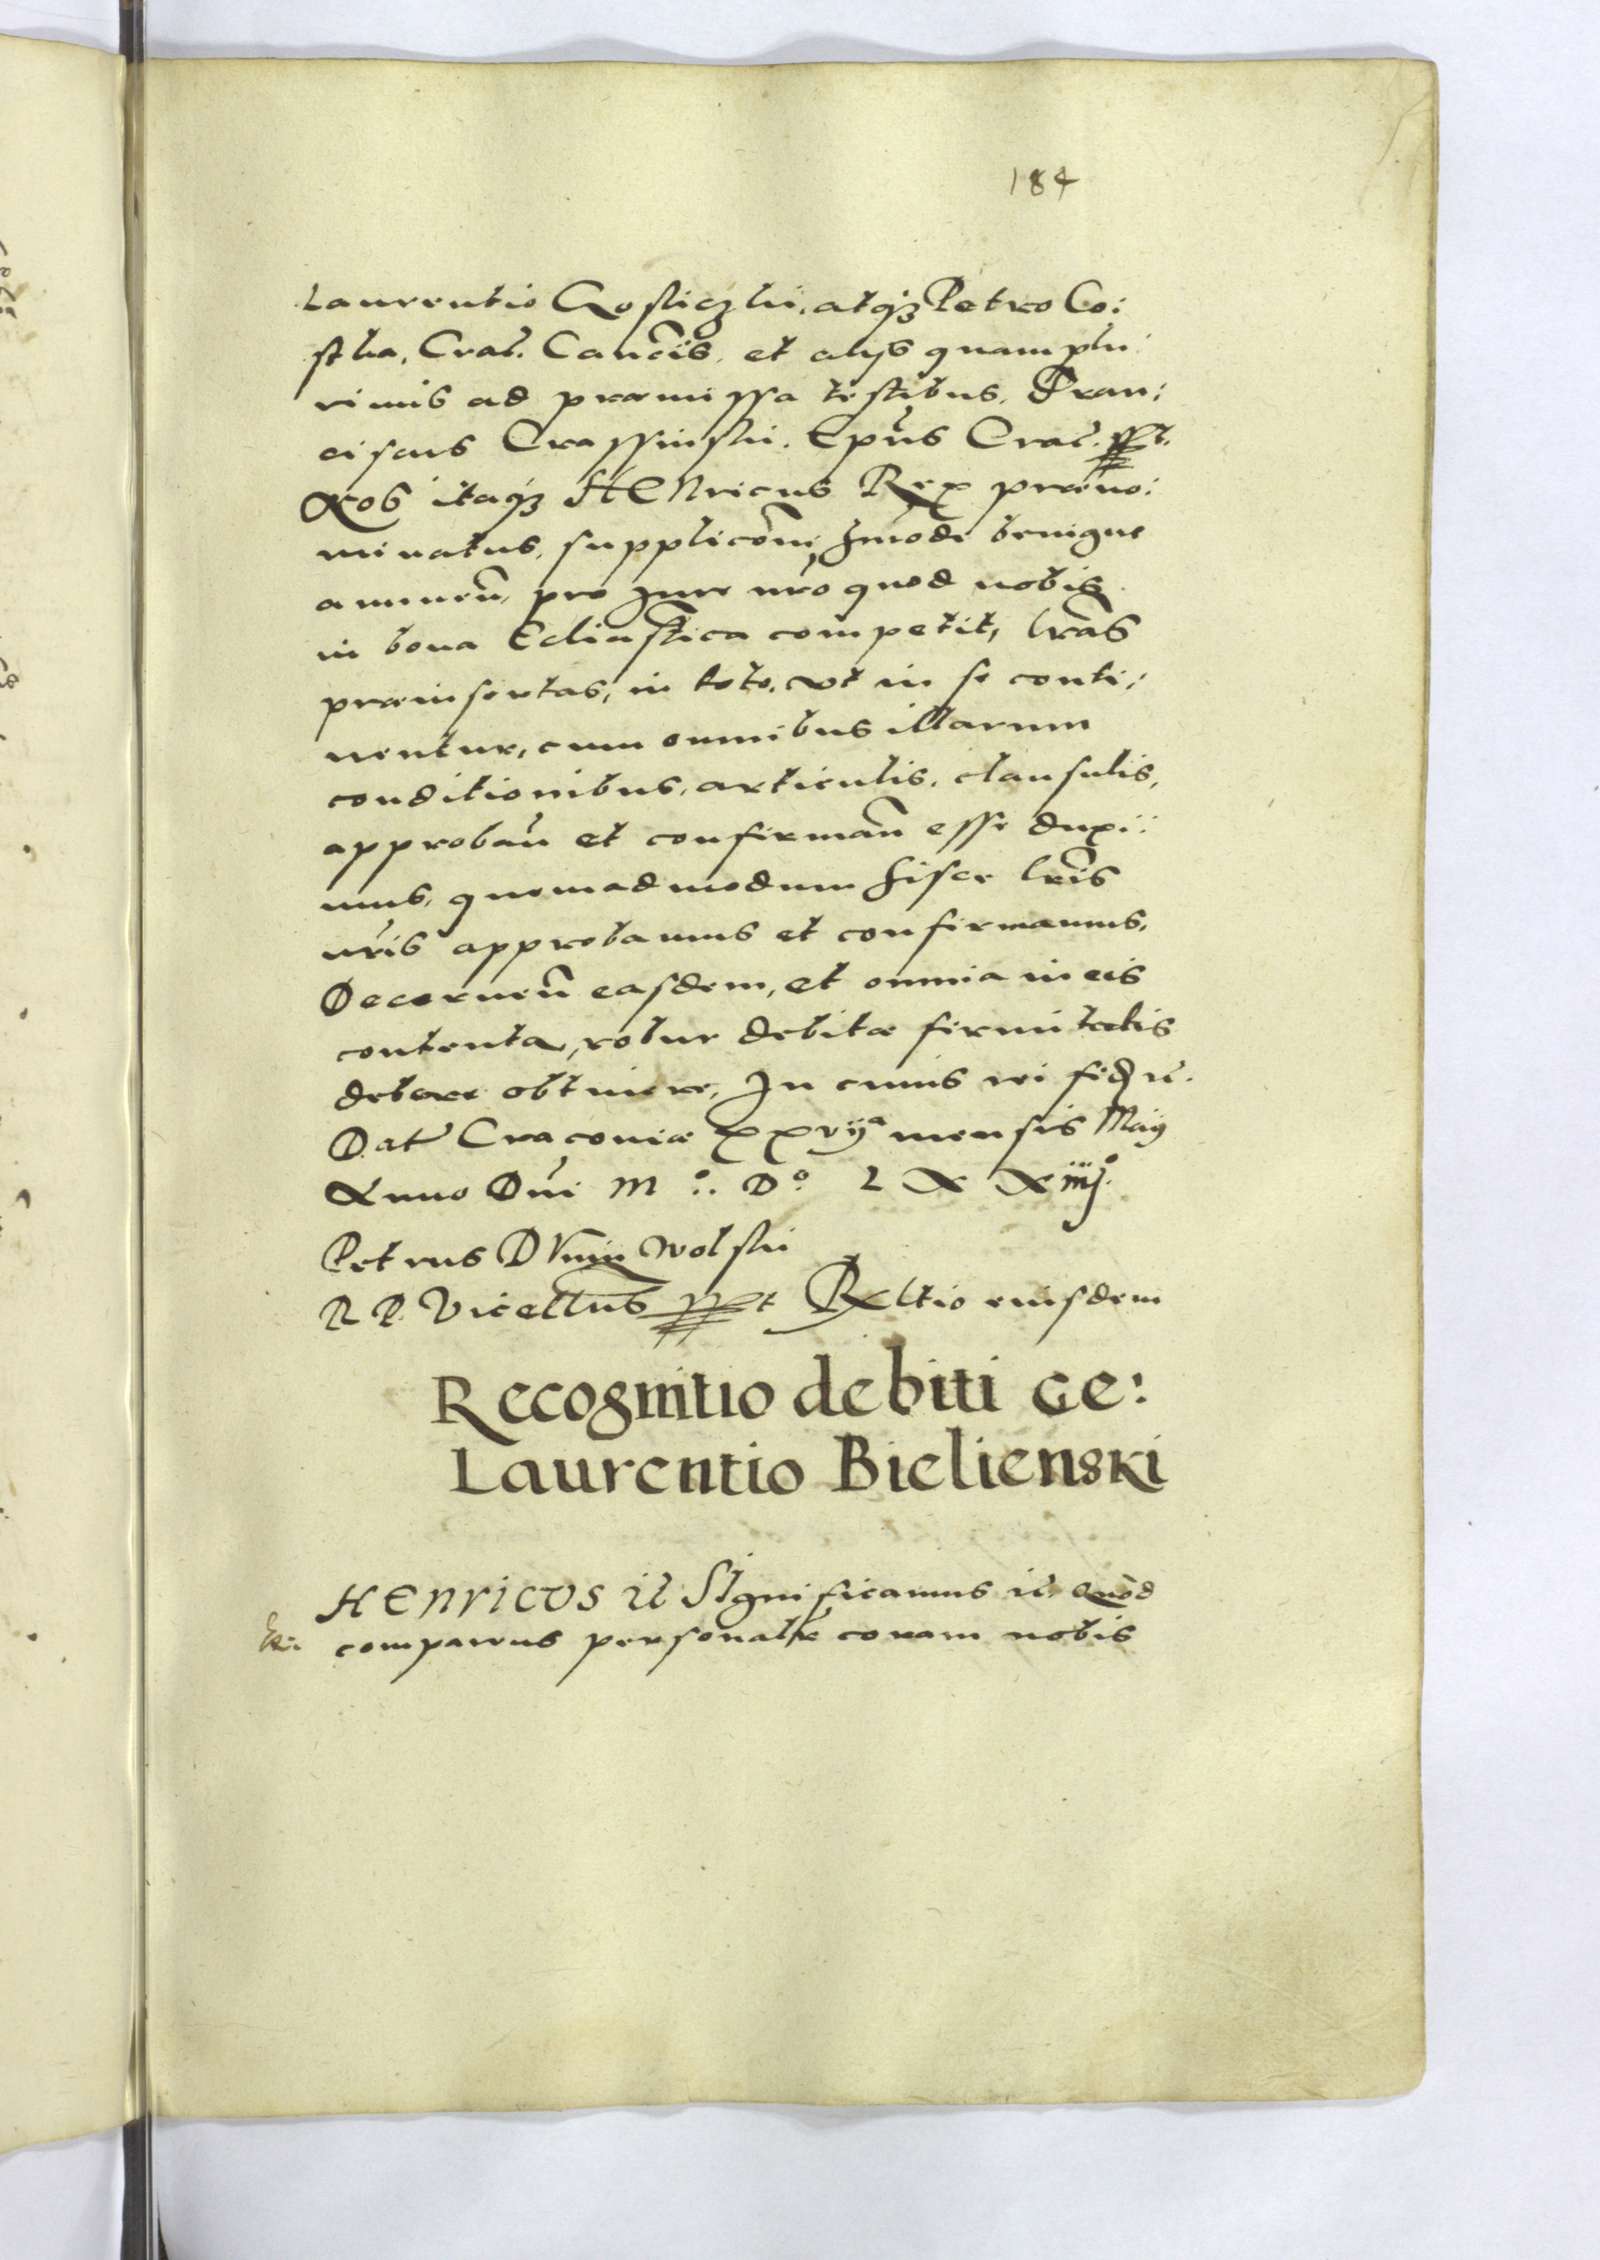 184
Laurentio Gosliczki, atq3 Petro Co:
stka, Crac. Canćis, et alijs quamplu
rimis ad præmissa testibus. Fran:
ciscus Crassinski. Epus Crac. sst.
Nos itaq3 HENricus Rex præno:
minatus, supplicõni hmõdi benigne
annuen, pro jure nro quod nobis
in bona Eccliastica competit, lras
præinsertas, in toto, ut in se conti:
nentur, cum omnibus illarum
conditionibus, articulis, clausulis,
approban et confirman esse duxi:
mus, quemadmodum hisce lris
nris approbamus et confirmamus,
Decernen easdem, et omnia in eis
contenta, robur debitæ firmitatis
debere obtinere, In cuius rei fidem ic.
Dat Cracoviæ xxvijª mensis Maij
Anno Dni Mº. Dº. LXXiiijº.
Petrus Dunin Wolski
R P. Vicecllrius sst Rltio eiusdem
Recognitio debiti Ge:
Laurentio Bielienski
HENricus ic Significamus ic. Quod
comparens personalr coram nobis